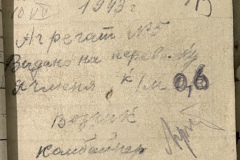 10 VII 1943 г.
Агрегат №5
Видано на перевозку
ячменя к/м 0,6
Везчик
комбайнер